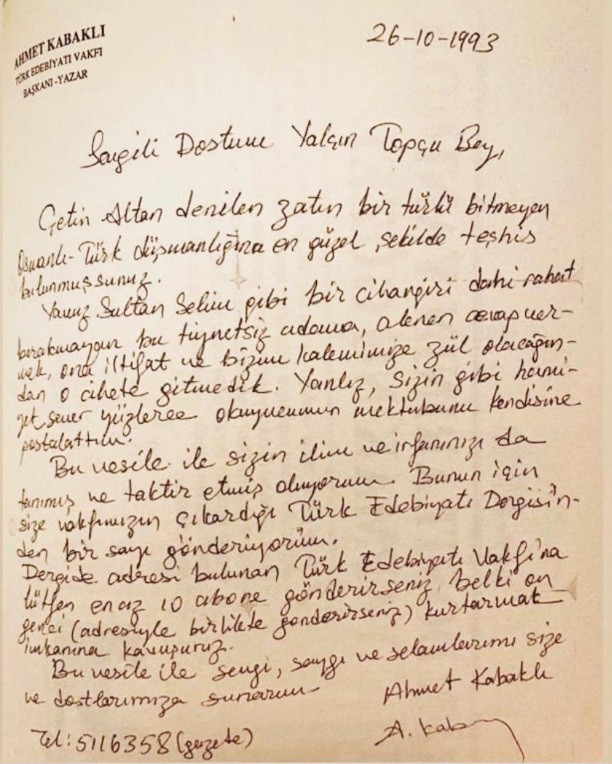 AHMET KABAKLI
TÜRK EDEBİYATI VAKFI
BAŞKANI-YAZAR
26-10-1993
Sevgili Dostum Yalçın Topçu Bey,
Çetin Altan denilen zatın bir türlü bitmeyen
Osmanlı-Türk düşmanlığına en güzel şekilde teşhis
bulunmuşsunuz.
Yavuz Sultan Selim gibi bir cihangiri dahi rahat
bırakmayan bu tıynetsiz adama, alenen cevap ver-
mek, ona iltifat ve bizim kalemimize zül olacağın-
dan o cihete gitmedik. Yanlız, sizin gibi hami-
yet sever yüzlerce okuyucumun mektubunu kendisine
postalattım.
Bu vesile ile sizin ilim ve irfanınızı da
tanımış ve taktir etmiş oluyorum. Bunun için
size vakfımızın çıkardığı Türk Edebiyatı Dergisin-
den bir sayı gönderiyorum.
Dergide adresi bulunan Türk Edebiyatı Vakfı'na
lütfen en az 10 abone gönderirseniz, belki on
genci (adresiyle birlikte gönderirseniz) kurtarmak
imkanına kavuşuruz.
Bu vesile ile sevgi, saygı ve selamlarımı size
ve dostlarımıza sunarım
Ahmet Kabaklı
A. Kaba
Tel: 5116358 (gazete)